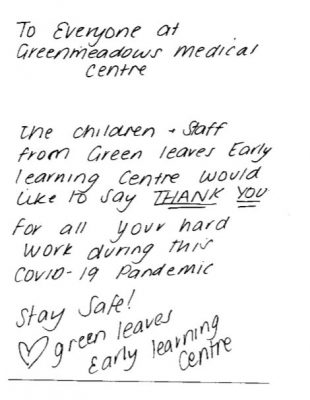 To Everyone at
Greenmeadows Medical
Centre
The children + Staff
from Green leaves Early
learning Centre would
like to say THANK YOU
for all your hard
work during this
Covid-19 Pandemic
Stay Safe!
♡ green leaves
Early learning
Centre